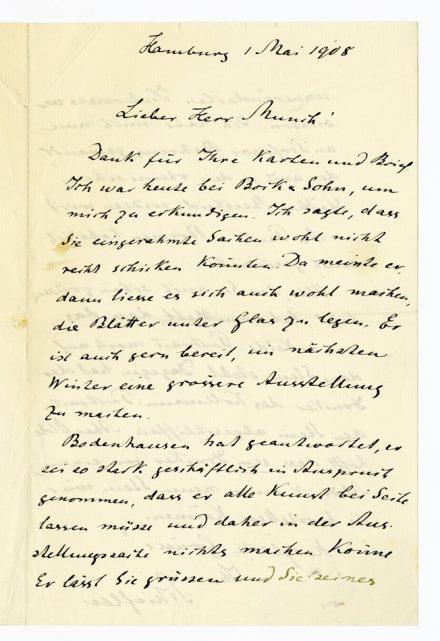 Hamburg 1 Mai 1908
Lieber Herr Munch!
Dank für Ihre Karten und Brief
Ich war heute bei Bock & Sohn, um
mich zu erkundigen. Ich sagte, dass
Sie eingerahmte Sachen wohl nicht
recht schicken könnten. Da meinte er,
dann liesse es sich auch wohl machen,
die Blätter unter Glas zu legen. Er
ist auch gern bereit, im nächsten
Winter eine grossere Ausstellung
zu machen.
Bodenhausen hat geantwortet, er
sei so stark geschäftlich in Anspruch
genommen, dass er alle Kunst bei Seite
lassen müsse und daher in der Aus-
stellungssache nichts machen könne
Er lässt Sie grüssen und Sie seines